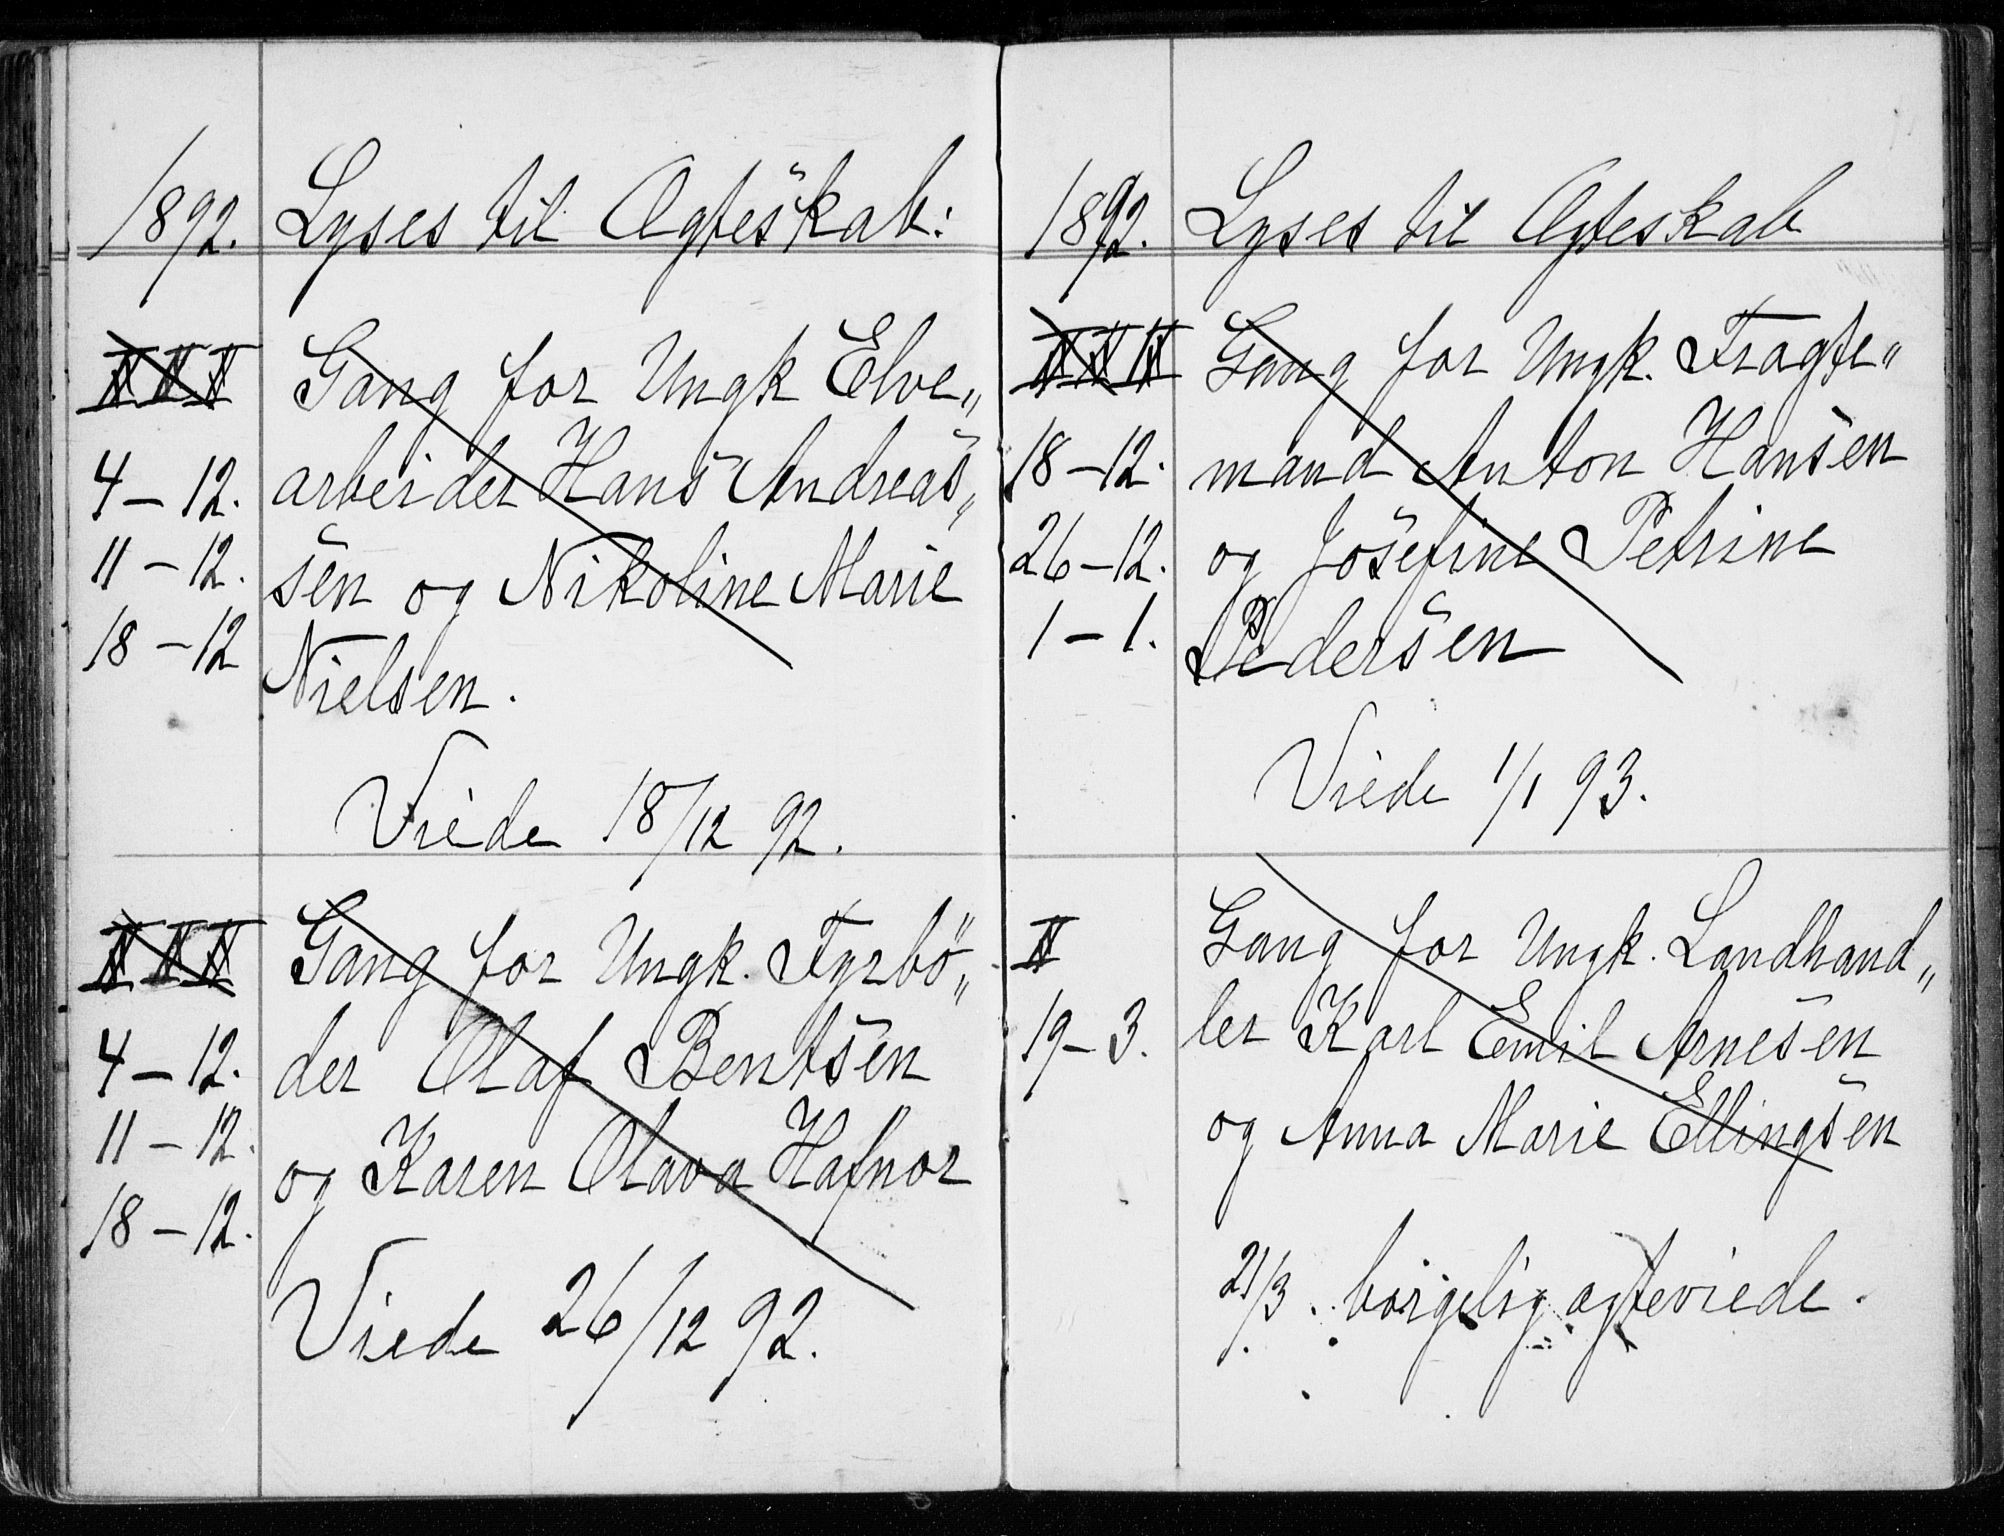 1892. Lyses til Ægteskab:
I I I Gang for Ungk Elve„
4 – 12. arbeider Hans Andreas„
11 – 12. sen og Nikoline Marie
18 – 12 Nielsen.
Viede 18/12 92.
I I I Gang for Ungk. Fyrbö„
4 – 12. der Olaf Bentsen
11 – 12. og Karen Olava Hafnor
18 – 12.
Viede 26/12 92.
1892. Lyses til Ægteskab
I I I Gang for Ungk. Fragte„
18 – 12. mand Anton Hansen
26 – 12. og Josefine Petrine
1 – 1. Pedersen
Viede 1/1 93.
I Gang for Ungk. Landhand„
19 – 3. ler Karl Emil Arnesen
og Anna Marie Ellingsen
21/3. borgelig ægteviede.